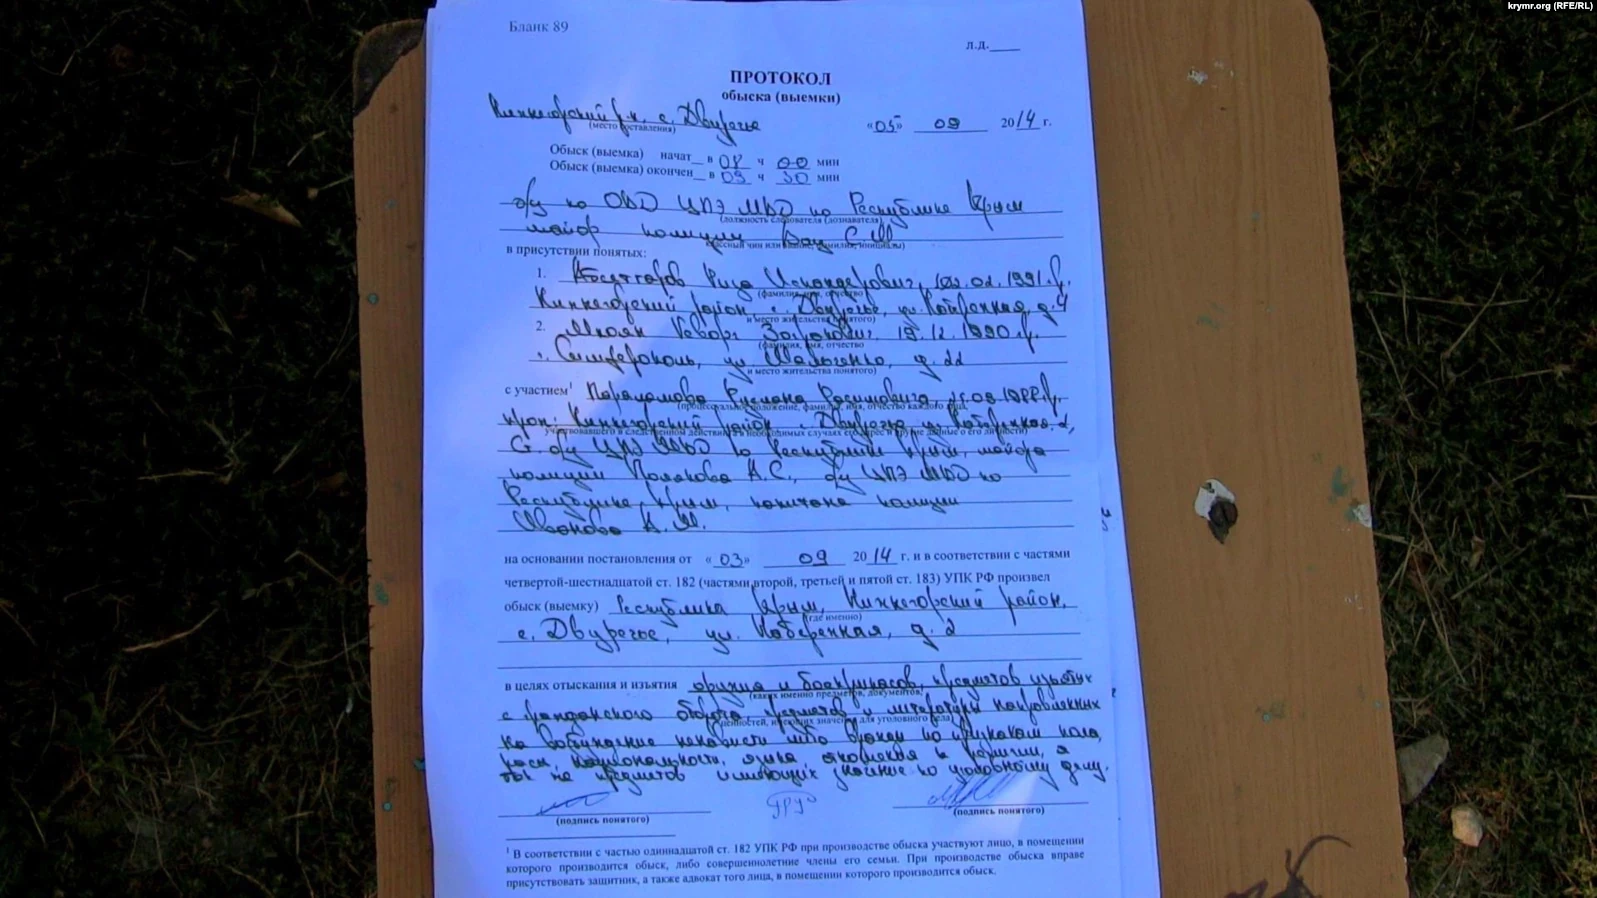 krymr.org (RFE/RL)
Бланк 89
л.д.____
ПРОТОКОЛ
обыска (выемки)
Нижнегорский р-н, с. Двуречье
(место составления)
«05» 09 2014 г.
Обыск (выемка) начат__ в 08 ч 00 мин
Обыск (выемка) окончен__ в 09 ч 30 мин
о/у по ОВД ЦПЭ МВД по Республике Крым
(должность следователя (дознавателя)
майор полиции С.М.
в присутствии понятых:
1. Искандерович, 02.1991 г.
(фамилия, имя, отчество
Нижнегорский район, с. Двуречье, ул. д. 4
и место жительства понятого)
2. Мкоян Геворг 19.12.1990 г.
(фамилия, имя, отчество
г. Симферополь, ул. д. 22
и место жительства понятого)
с участием¹ Руслана
(процессуальное положение, фамилия, имя, отчество каждого лица,
Нижнегорский район с. Двуречье ул.
участвовавшего в следственном действии, а в необходимых случаях его адрес и другие данные о его личности)
о/у ЦПЭ МВД по Республике Крым, майора
полиции Полякова А.С., о/у ЦПЭ МВД по
Республике Крым, капитана полиции
Иванова А.М.
на основании постановления от «03» 09 2014 г. и в соответствии с частями
четвертой-шестнадцатой ст. 182 (частями второй, третьей и пятой ст. 183) УПК РФ произвел
обыск (выемку) Республика Крым, Нижнегорский район,
(где именно)
с. Двуречье, ул. Набережная, д. 2
в целях отыскания и изъятия оружия и боеприпасов, предметов изъятых
(каких именно предметов, документов,
с гражданского оборота, предметов и литературы направленных
ценностей, имеющих значение для уголовного дела)
на возбуждение ненависти либо вражды по признакам пола,
расы, национальности, языка, отношения к религии, а
так же предметов имеющих значение по уголовному делу.
(подпись понятого)
(подпись понятого)
¹ В соответствии с частью одиннадцатой ст. 182 УПК РФ при производстве обыска участвуют лицо, в помещении
которого производится обыск, либо совершеннолетние члены его семьи. При производстве обыска вправе
присутствовать защитник, а также адвокат того лица, в помещении которого производится обыск.